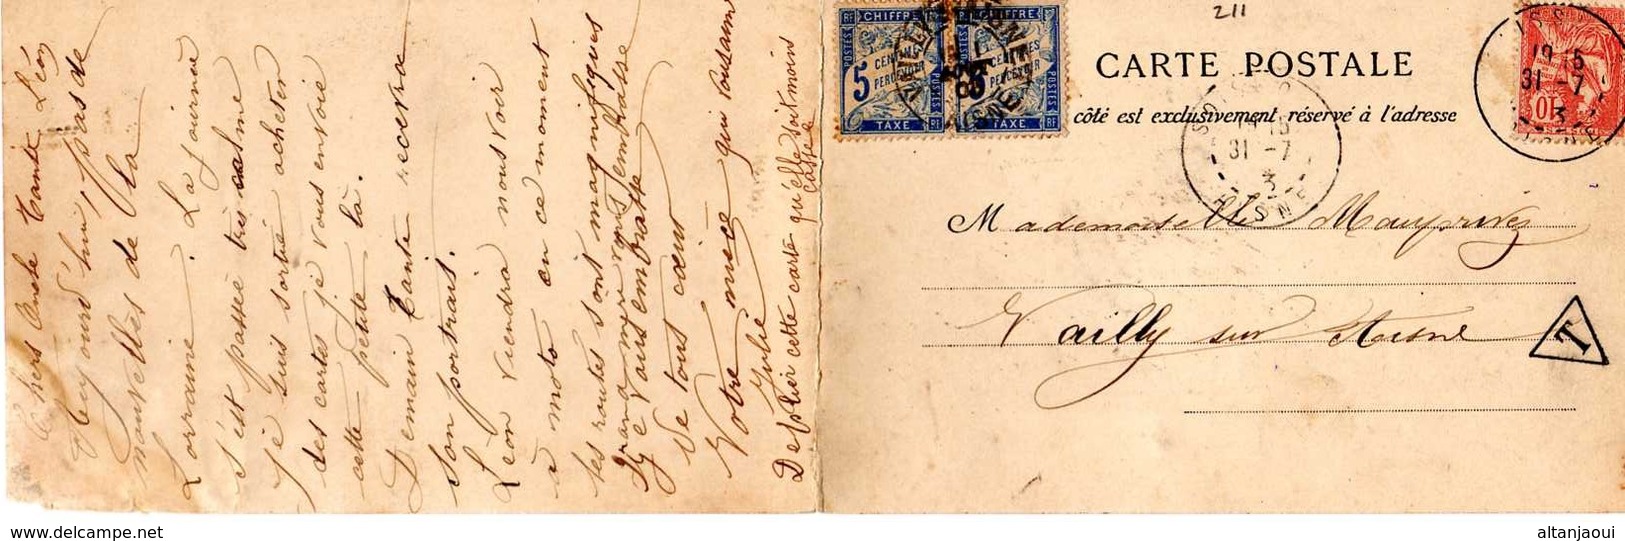 Chers Oncle Tante Léon
Aujourd'hui, pas de
nouvelles de la
Lorraine. La journée
s'est passée très calme
je suis sortie acheter
des cartes je vous envoie
cette petite là.
Demain tante recevra
son portrait.
Léon viendra nous voir
à moto en ce moment
les routes sont magnifiques
Grand mère vous embrasse
Je vous embrasse
de tout cœur
Votre nièce qui vous aime
Julie
Deplier cette carte qu'elle soit moins
cassé
RF CHIFFRE RF
POSTES
5
CENTIMES
À PERCEVOIR
TAXE RF
CHIFFRE RF
5
CENTIMES
À PERCEVOIR
POSTES
TAXE RF
211
CARTE POSTALE
côté est exclusivement réservé à l'adresse
31 -7
3
AISNE
10
31 -7
3
AISNE
Mademoiselle Mauprivez
Vailly sur Aisne
T
altanjaoui